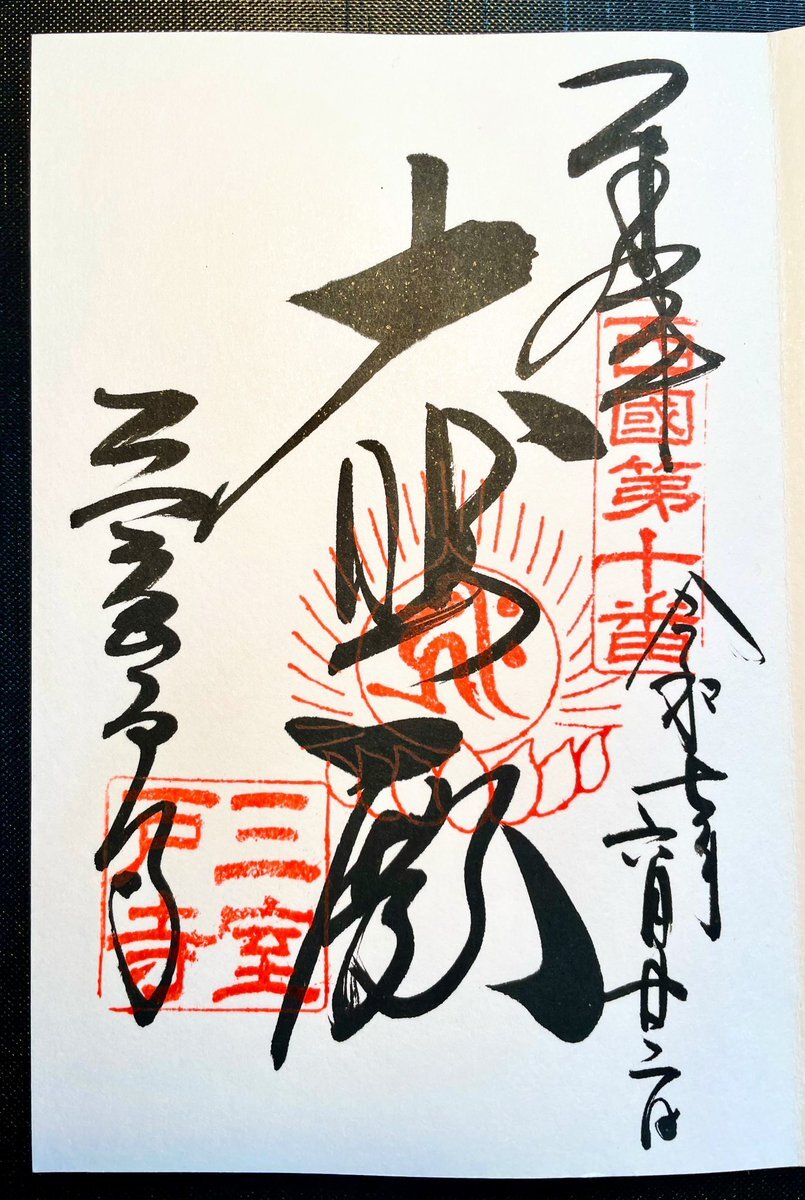 奉拝
西國第十番
令和七年
六月廿二日
大悲殿
三室戸寺
三室
戸寺